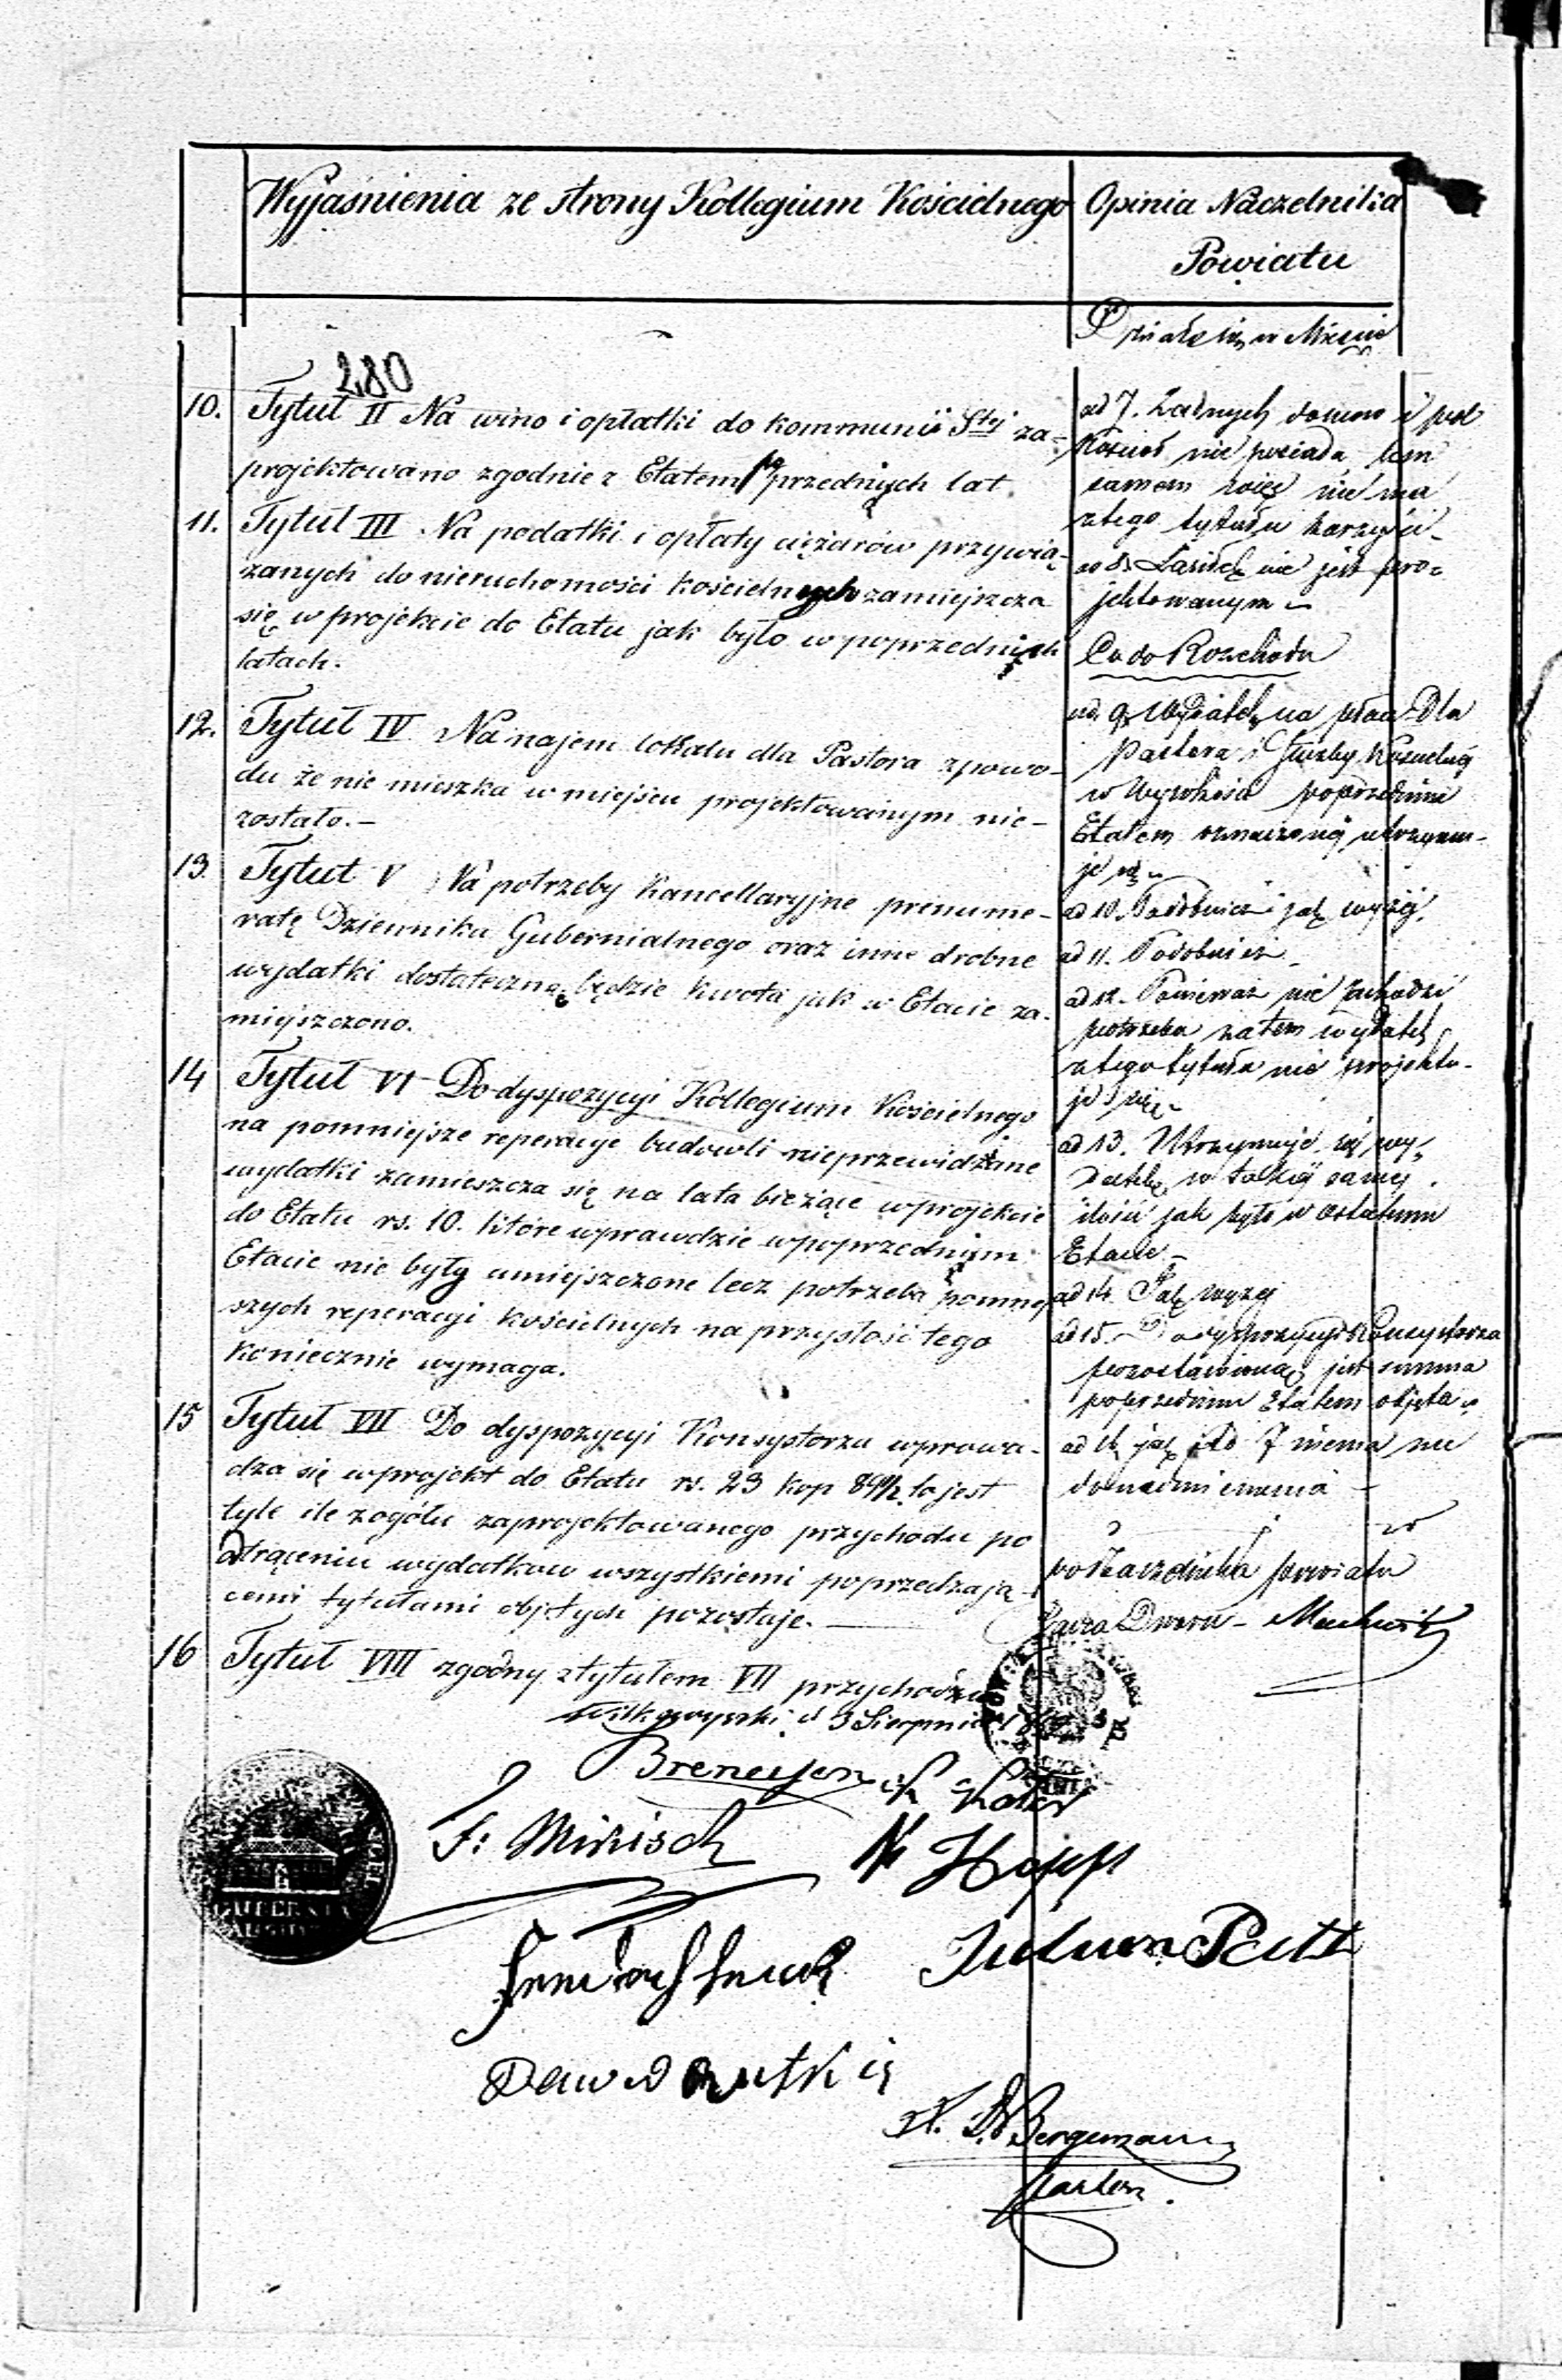 Wyjaśnienia ze strony Kollegium Kościelnego
Opinia Naczelnika
Powiatu
280
10. Tytuł II Na wino i opłatki do kommunii Stej za-
projektowano zgodnie z Etatem poprzednich lat.
11. Tytuł III Na podatki i opłaty ciężarów przywią-
zanych do nieruchomości kościelnych zamiejszcza
się w projekcie do Etatu jak było w poprzednich
latach.
12. Tytuł IV Na najem lokalu dla Pastora z powo-
du że nie mieszka w miejscu projektowanym nie-
zostało.-
13. Tytuł V Na potrzeby Kancellaryjne prenume-
ratę Dziennika Gubernialnego oraz inne drobne
wydatki dostateczną będzie kwota jak w Etacie za-
miejszczono.
14 Tytuł VI Do dyspozycyi Kollegium Kościelnego
na pomniejsze reperacye budowli nieprzewidziane
wydatki zamieszcza się na lata bieżące w projekcie
do Etatu rs. 10. które wprawdzie w poprzednim
Etacie nie były umiejszczone lecz potrzeba pomniej
szych reperacyi kościelnych na przyszłość tego
koniecznie wymaga.
15 Tytuł VII Do dyspozycyi Konsystorza wprowa-
dza się w projekt do Etatu rs. 23 kop 89½ to jest
tyle ile z ogółu zaprojektowanego przychodu po
odtrąceniu wydatków wszystkiemi poprzedzają-
cemi tytułami objętych pozostaje.
16 Tytuł VIII zgodny z tytułem VII przychodu
d 3 Sierpnia
F: Mirisch
N Hopp
Bergemann
Pastor.
ad 7. Żadnych domów i pól
Kościół nie posiada, tem
samem więc nie ma
z tego tytułu korzyści-
ad 8. Zasiłek nie jest pro-
jektowanym
Co do Rozchodu
ad. 9. Wydatek na płace dla
Pastora i Służby Kościelnej
w wysokości poprzednim
Etatem oznaczonej utrzymu-
je się
ad 10. Podobnież jak wyżej.
ad 11. Podobnież
ad 12. Ponieważ nie zachodzi
potrzeba zatem wydatek
z tego tytułu nie projektu-
je się
ad 13. Utrzymuje się wy-
datek w takiej samej
ilości jak było w ostatnim
Etacie-
ad 14. Jak wyżej
ad 15. Do dyspozycyi Konsystorza
pozostawioną jest summa
poprzednim Etatem objęta
ad 16 jak do 7 niema nic
do nadmienienia
Naczelnika powiatu
Radca Dworu-